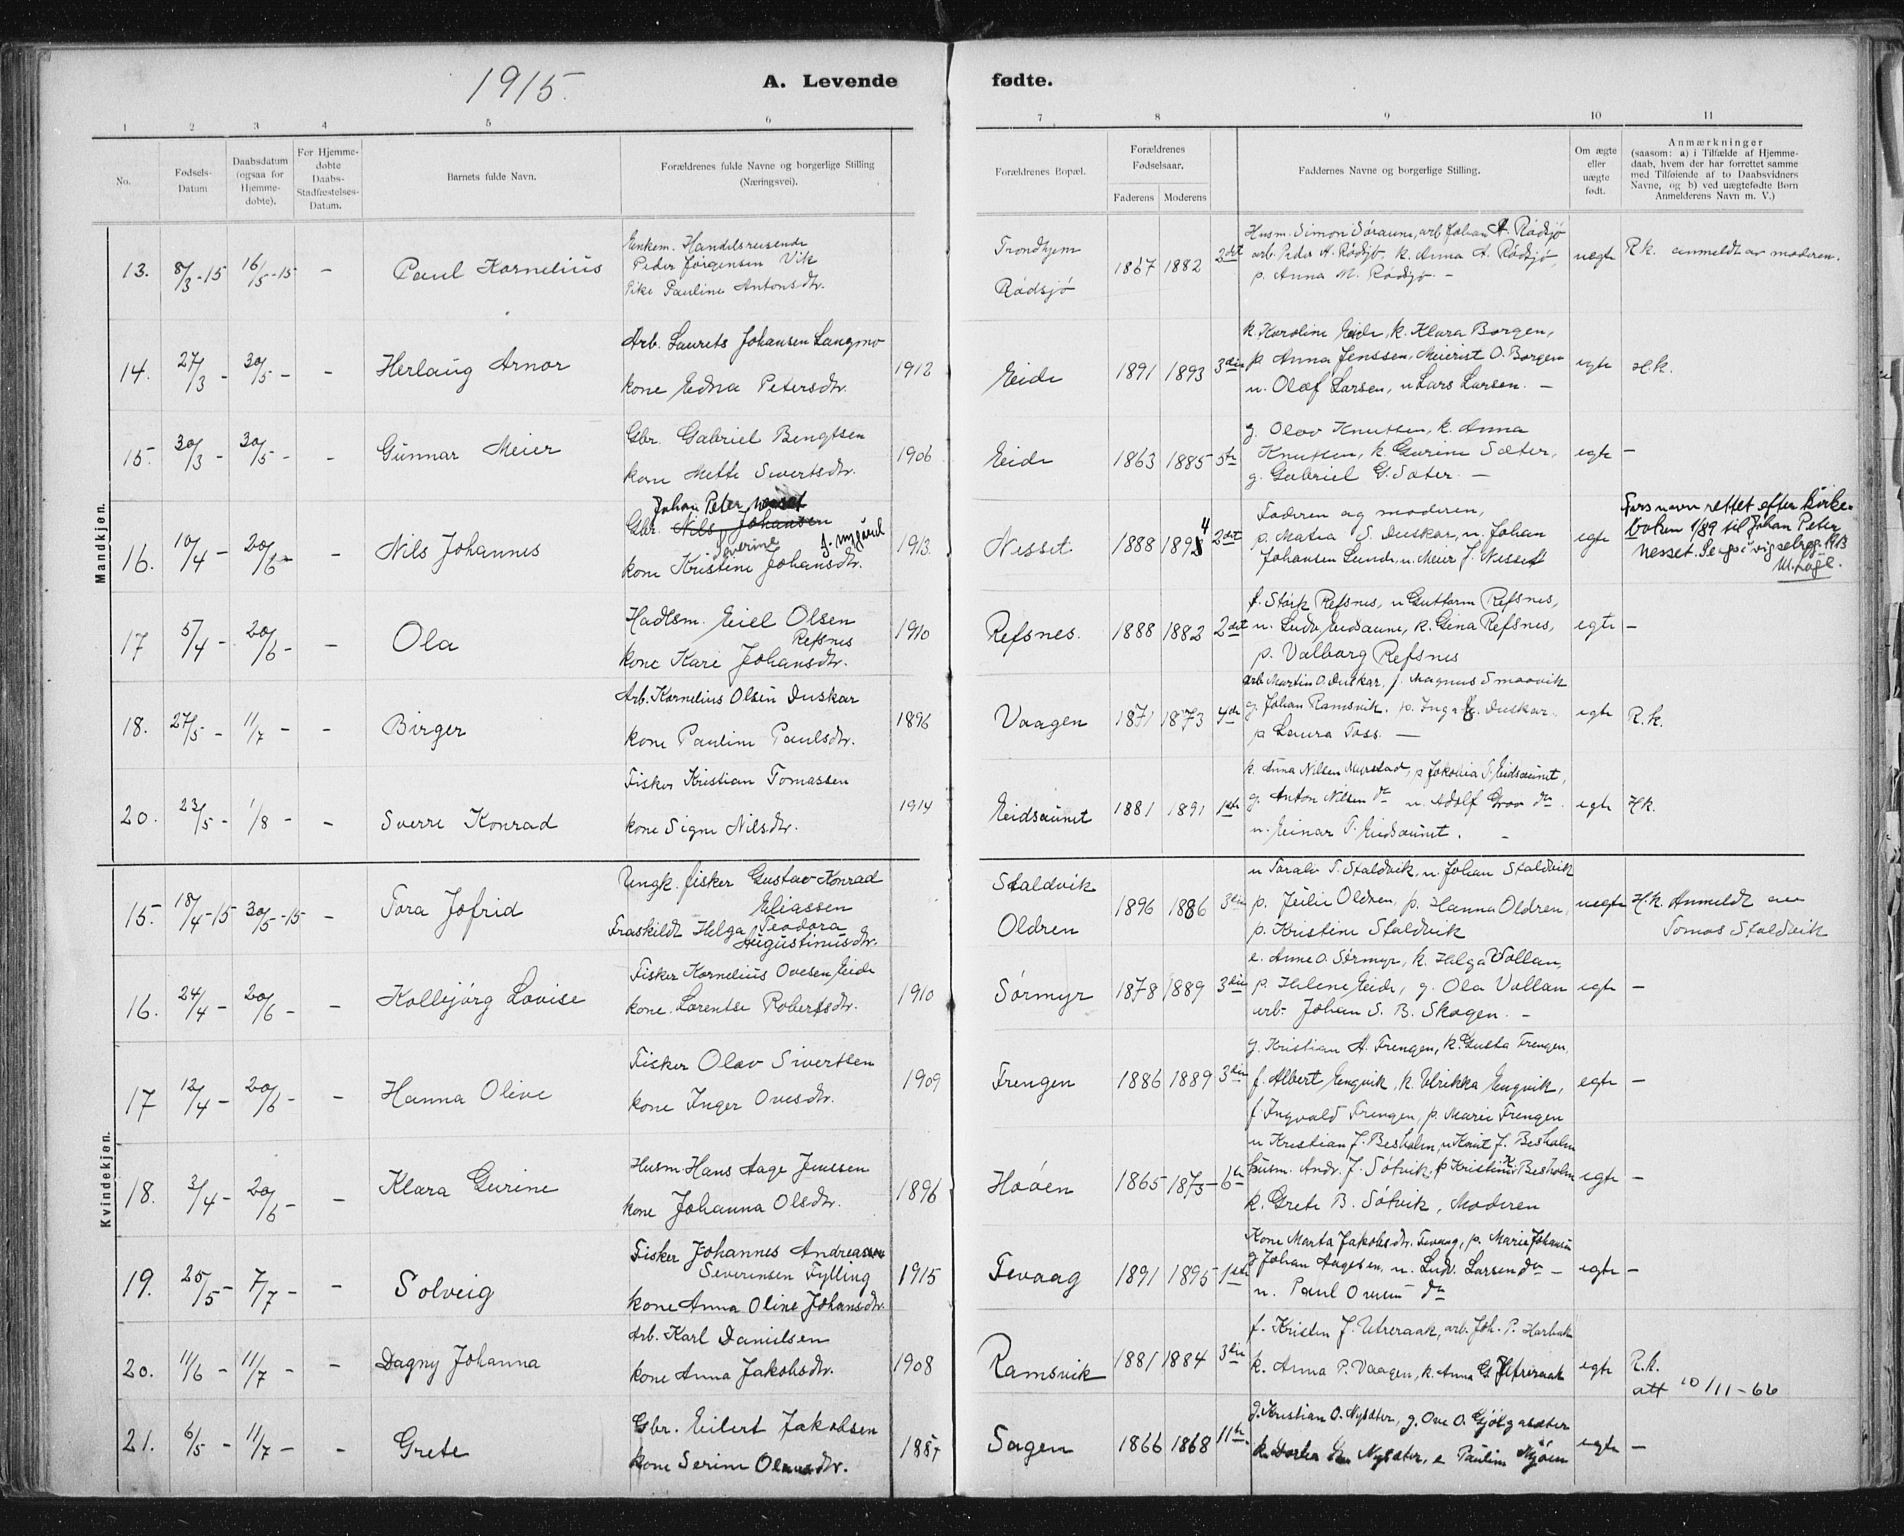 1915.
A. Levende fødte.
1 2 3 4 5 6 7 8 9 10 11
No.
Fødsels-
Datum
Daabsdatum
(ogsaa for
Hjemme-
døbte).
For Hjemme-
døbte
Daabs-
Stadfæstelses-
Datum.
Barnets fulde Navn.
Forældrenes fulde Navne og borgerlige Stilling
(Næringsvei).
Forældrenes Bopæl.
Forældrenes
Fødselsaar.
Faderens Moderens
Faddernes Navne og borgerlige Stilling.
Om ægte
eller
uægte
født.
Anmærkninger
(saasom: a) i Tilfælde af Hjemme-
daab, hvem der har forrettet samme
med Tilføiende af to Daabsvidners
Navne, og b) ved uægtefødte Børn
Anmelderens Navn m. V.)
Mandkjøn.
13. 8/3-15 16/5-15 - Paul Kornelius
Enkem. Handelsreisende
Peder Jørgensen Vik
Pike Pauline Antonsdtr.
Trondhjem
Rødsjø
1867 1882 2det
Husm. Simon Søraune, arb Johan A. Rødsjø
arb. Peder A. Rødsjø, k. Anna A. Rødsjø,
p. Anna M. Rødsjø. -
uegte R.k. anmeldt av moderen.
14. 27/3 - 30/5 - - Herlaug Arnor
Arb. Laurets Johansen Langmo
kone Edna Petersdtr.
1912 Eide 1891 1893 3die
k. Karoline Eide, k. Klara Borgen,
p. Anna Jenssen, Meierist O. Borgen
u. Olaf Larsen, u Lars Larsen. -
egte H.k.
15. 30/3 - 30/5 - - Gunnar Meier
Gbr. Gabriel Bengtsen
kone Mette Sivertsdtr.
1906 Eide 1863 1885 5te
g. Olov Knutsen, k. Anna
Knutsen, k. Gurine Sæter,
g. Gabriel G. Sæter. -
egte -
16. 10/4 - 20/6 - Nils Johannes
Johan Peter Nesset
Gbr. Nils Johansen
Severine J. nygård
kone Kristine Johansdtr.
1913. Nesset 1888 1894 2det
Faderen og moderen,
p. Matea S. Duskar, u. Johan
Johansen Lunde, u. Meier J. Nesset
egte
Fars navn rettet efter kirke-
boken 1/89 til Johan Peter
Nesset. Se også vigselreg. 1913
M. Løgl.
17 5/4 - 20/6 - - Ola
Hadlsm. Eiel Olsen
Refsnes
kone Kari Johansdtr.
1910 Refsnes. 1888 1882 2det
f. Stark Refsnes, u Guttorm Refsnes,
u. Ludv. Eidsaune, k. Gina Refsnes,
p. Valborg Refsnes
egte -
18. 27/5 - 11/7 - - Birger
Arb. Kornelius Olsen Duskar
kone Pauline Paulsdtr.
1896 Vaagen 1871 1873 4de
arb Martin O. Duskar, f. Magnus Smaavik
g. Johan Ramsvik. p. Inga K. Duskar.
p Laura Foss. -
egte R.k.
20. 23/5 - 1/8 - - Sverre Konrad
Fisker Kristian Tomassen
kone Signe Nilsdtr.
1914 Eidsaunet 1881 1891 1ste
k. Anna Nilsen Myrstad, p Jakobia T. Eidsaunet,
g. Anton Nilsen do u. Adolf Grov do.
u. Einar T. Eidsaunet. -
egte H.k.
Kvindekjøn.
15. 18/4-15 30/5-15 - Tora Jofrid
Ungk. fisker Gustav Konrad
Eliassen
Fraskildt Helga Teodora
Augustinusdtr.
Staldvik
Oldren
1896 1886 3die
u Toralv T. Staldvik, u. Johan Staldvik
p. Julie Oldren, p. Hanna Oldren,
p. Kristine Staldvik
uegte H.k. Anmeldt av
Tomas Staldvik
16. 24/4 - 20/6 - - Kolbjørg Lovise
Fisker Kornelius Ovesen Eide
kone. Lorentse Robertsdtr.
1910 Sørmyr 1878 1889 3die
e. Anne O. Sørmyr, k. Helga Vollan,
p. Helene Eide, g. Ola Vollan
arb. Johan S. B. Skogen. -
egte -
17 12/4 - 20/6 - - Hanna Olive
Fisker Olav Sivertsen
kone Inger Ovesdtr.
1909 Frengen 1886 1889 3die
g. Kristian A. Frengen, k. Gusta Frengen,
f. Albert Engvik, k Ulrikka Engvik,
f. Ingvald Frengen, p. Marie Frengen
egte -
18. 3/4 - 20/6 - - Klara Gurine
Husm. Hans Aage Jenssen
kone Johanna Olsdtr.
1896 Høøen 1865 1875 - 6te
u Kristian J. Besholm, u Knut J. Besholm
husm. Andr. J. Søtvik, p Kristine K Besholm
k. Grete B. Søtvik, Moderen
egte -
19. 25/5 - 7/7 - - Solveig
Fisker Johannes Andreas
Severinsen Fylling
kone Anna Oline Johansdtr.
1915 Fevaag 1891 1895 1ste
Kone Marta Jakobsdtr. Fevaag, p. Marie Johansen
g Johan Aagesen, u. Ludv. Larsen do -
u. Paul Ovesen do
egte -
20. 11/6 - 11/7 - - Dagny Johanna
Arb. Karl Danielsen
kone Anna Jakobsdtr.
1908 Ramsvik 1881 1884 3die
f. Kristen J. Utreraak, arb. Joh. P. Harbak
k. Anna P. Vaagen, k. Anna G. Utreraak
egte R.k.
att 10/11-66
21. 6/5 - 11/7 - - Grete
Gbr. Eilert Jakobsen
kone Serine Olausdtr.
1887 Sagen 1866 1868 11te
g. Kristian O. Nysæter, g. Ove O. Gjølgasæter
k. Dortea Nysæter, e Pauline Mjøen
egte -